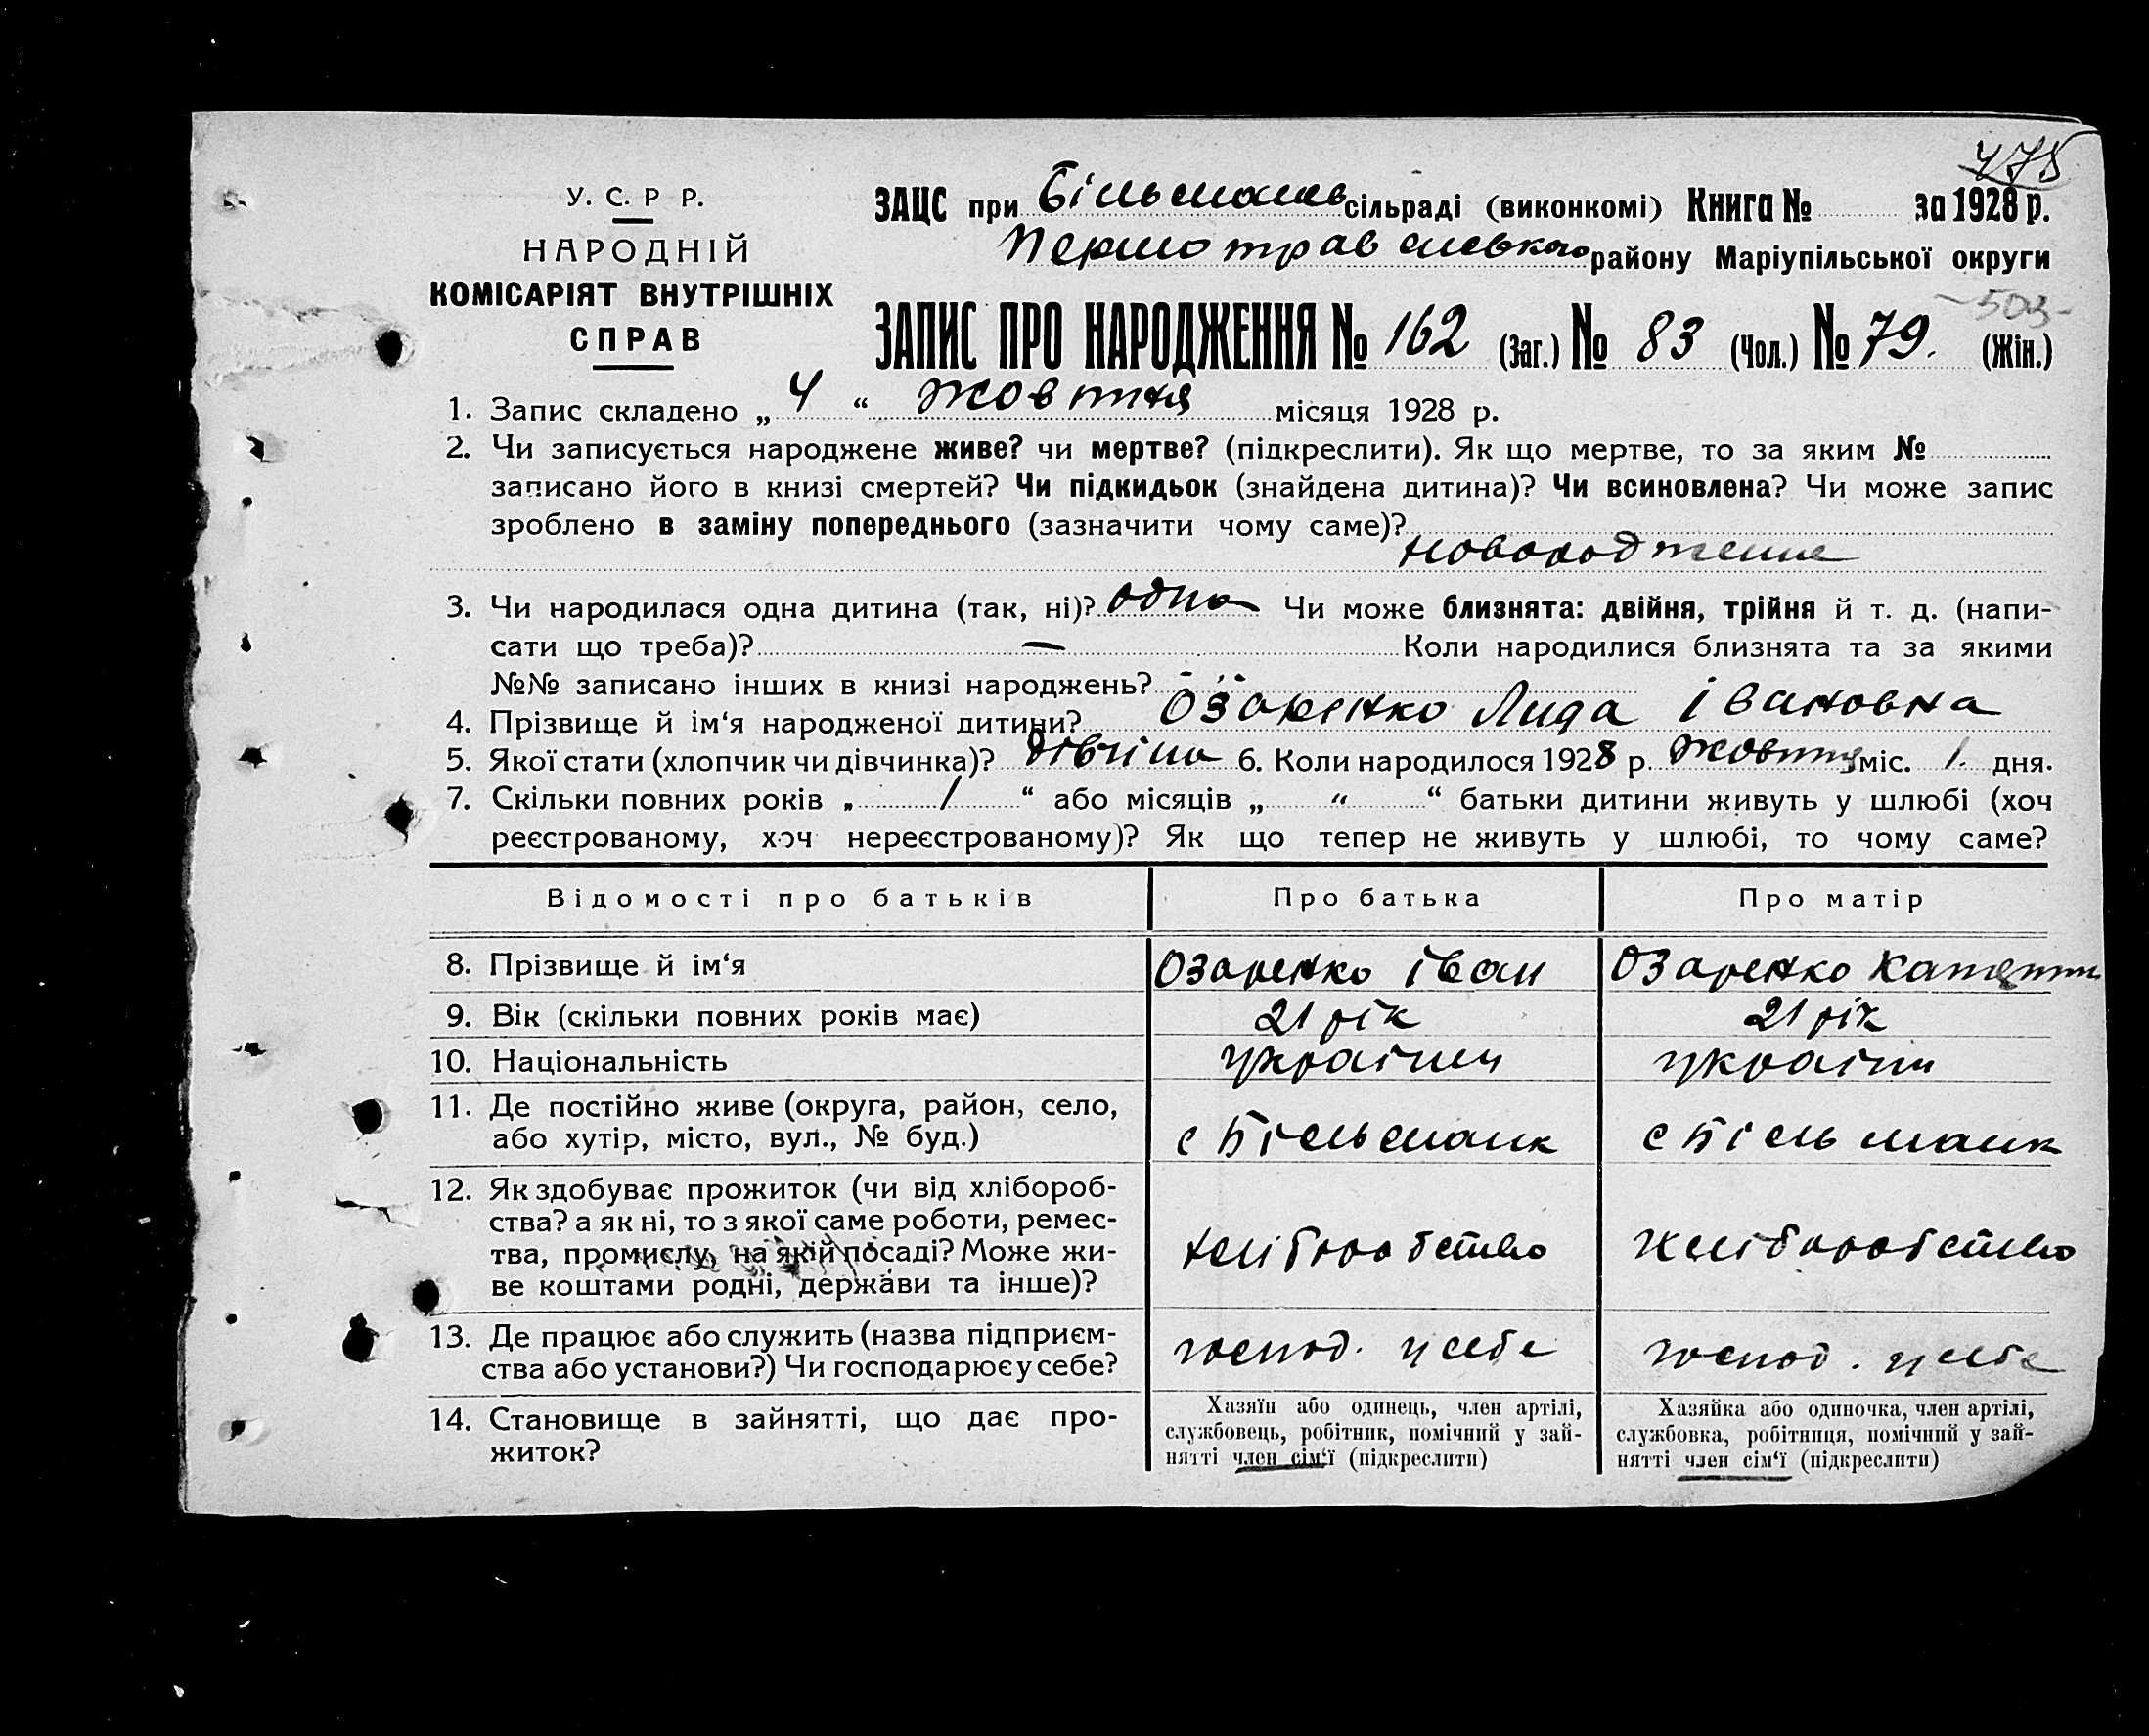 478
У. С. Р Р.
НАРОДНІЙ
КОМІСАРІЯТ ВНУТРІШНІХ
СПРАВ
ЗАЦС при Більманк сільраді (виконкомі) Книга № за 1928 р.
Першотравенського району Маріупільської округи
-503-
ЗАПИС ПРО НАРОДЖЕННЯ № 162 (Заг.) № 83 (Чол.) № 79. (Жін.)
1. Запис складено „ 4 “ жовтня місяця 1928 р.
2. Чи записується народжене живе? чи мертве? (підкреслити). Як що мертве, то за яким №
записано його в книзі смертей? Чи підкидьок (знайдена дитина)? Чи всиновлена? Чи може запис
зроблено в заміну попереднього (зазначити чому саме)?
новородженне
3. Чи народилася одна дитина (так, ні)? одна Чи може близнята: двійня, трійня й т. д. (напи-
сати що треба)? — Коли народилися близнята та за якими
№№ записано інших в книзі народжень?
4. Прізвище й ім‘я народженої дитини? Озаренко Лида Івановна
5. Якої стати (хлопчик чи дівчинка)? дівчіна 6. Коли народилося 1928 р. жовтня міс. 1. дня.
7. Скільки повних років „ 1 “ або місяців „ " “ батьки дитини живуть у шлюбі (хоч
реєстрованому, хоч нереєстрованому)? Як що тепер не живуть у шлюбі, то чому саме?
Відомості про батьків Про батька Про матір
8. Прізвище й ім‘я Озаренко Іван Озаренко
9. Вік (скільки повних років має) 21 рік 21 рік
10. Національність україн україн
11. Де постійно живе (округа, район, село,
або хутір, місто, вул., № буд.) с Більманк с Більманк
12. Як здобуває прожиток (чи від хлібороб-
ства? а як ні, то з якої саме роботи, ремес-
тва, промислу, на якій посаді? Може жи-
ве коштами родні, держави та інше)? хліборобство хліборобство
13. Де працює або служить (назва підприєм-
ства або установи?) Чи господарює у себе? господ. у себе господ. у себе
14. Становище в зайнятті, що дає про-
житок?
Хазяїн або одинець, член артілі,
службовець, робітник, помічний у зай-
нятті член сім‘ї (підкреслити)
Хазяйка або одиночка, член артілі,
службовка, робітниця, помічний у зай-
нятті член сім‘ї (підкреслити)